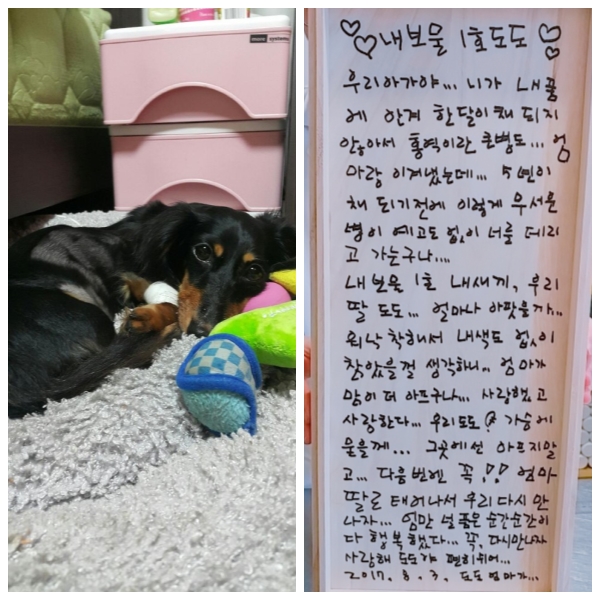 내보물 1호 도도
우리아가야... 니가 내품
에 안겨 한달이채 되지
않아서 홍역이란 큰병도... 엄
마랑 이겨냈는데... 5년이
채 되기전에 이렇게 무서운
병이 예고도 없이 너를 데리
고 가는구나....
내보물 1호 내새끼, 우리
딸 도도... 얼마나 아팟을까..
워낙 착해서 내색도 없이
참았을껄 생각하니.. 엄마가
맘이 더 아프구나... 사랑했고
사랑한다... 우리도도 가슴에
묻을께... 그곳에선 아프지말
고... 다음번엔 꼭!! 엄마
딸로 태어나서 우리 다시 만
나자... 엄만 널 품은 순간순간이
다 행복했다... 꼭, 다시만나자
사랑해 도도야 편히쉬어...
2017. 8. 3. 도도엄마가...